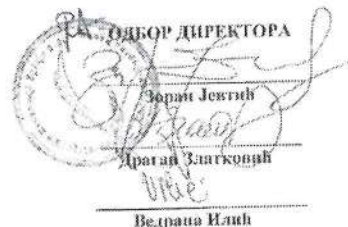 ОДБОР ДИРЕКТОРА
Зоран Јевтић
Драган Златковић
Ведрана Илић